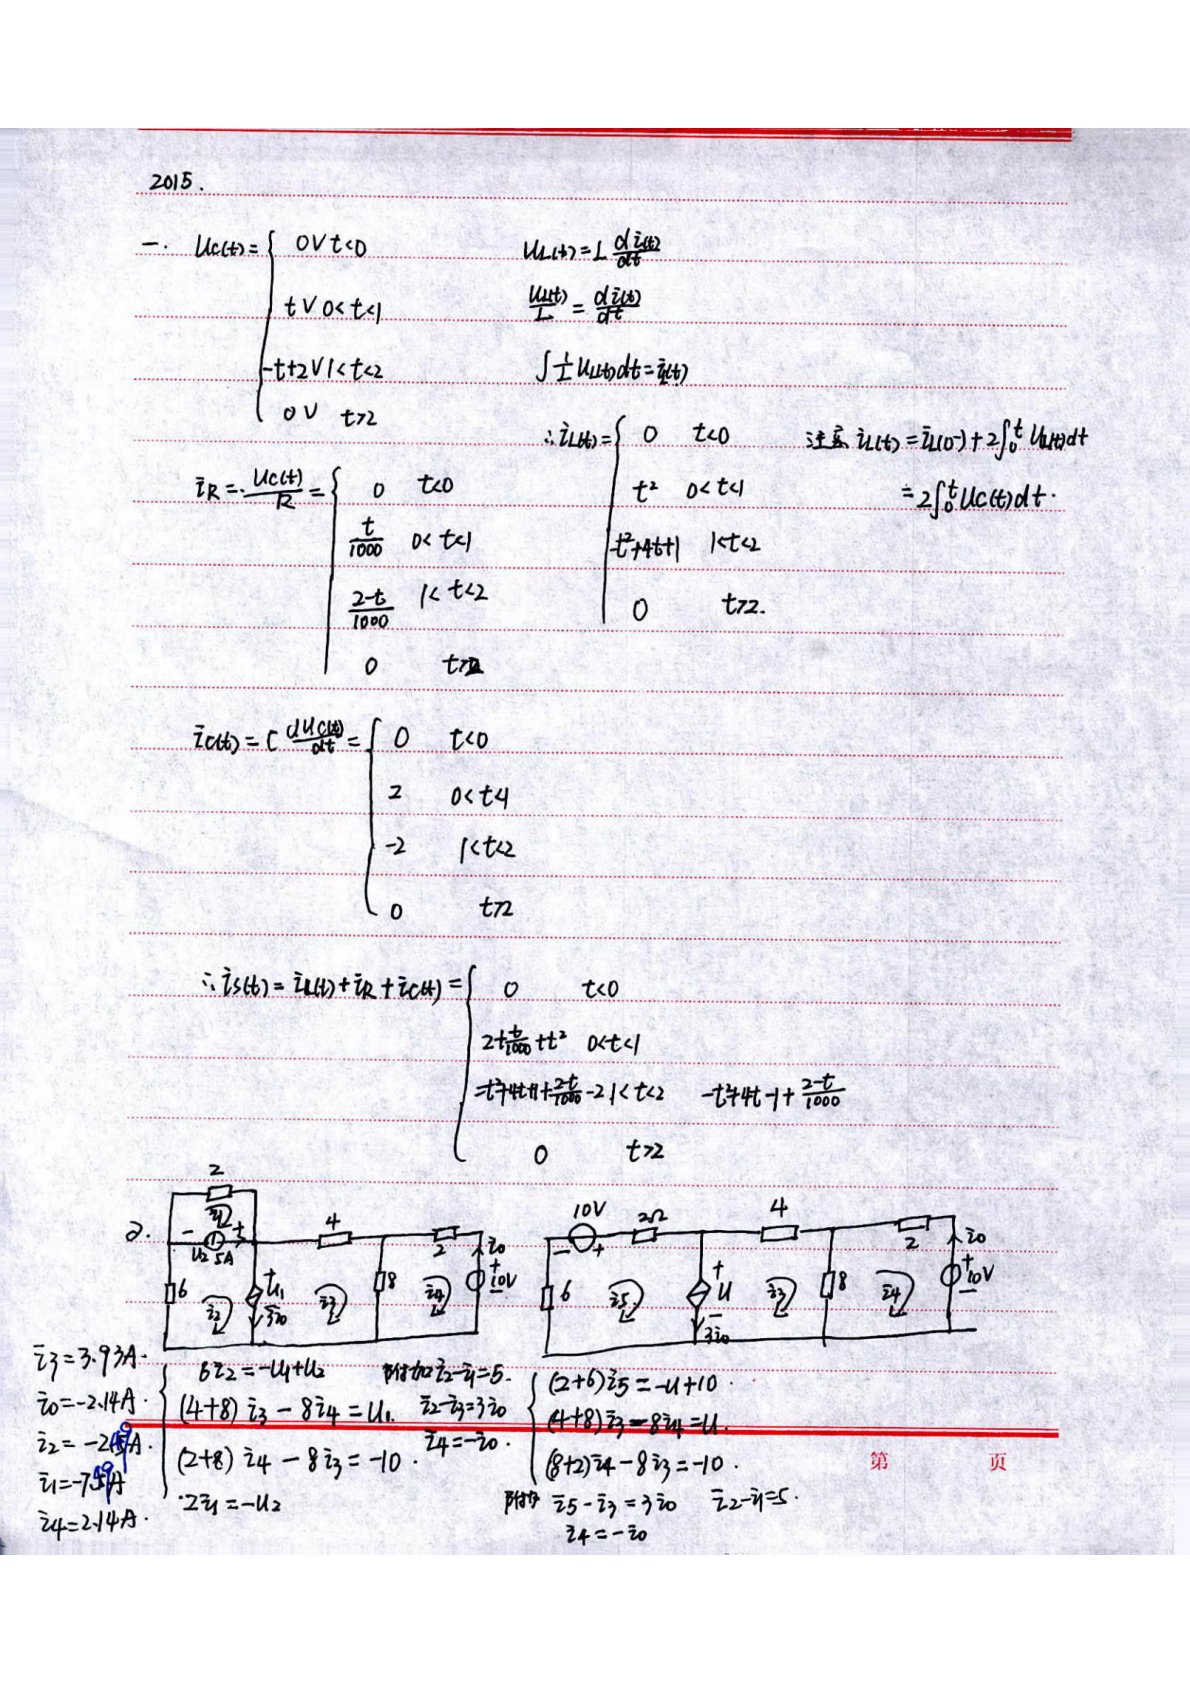 2015.
一. Uc(t)= { 0V t<0
t V 0<t<1
-t+2 V 1<t<2
0 V t>2
UL(t)=L di(t)/dt
UL(t)/L = di(t)/dt
∫ 1/L UL(t)dt = iL(t)
∴ iL(t)= { 0 t<0
t² 0<t<1
-t²+4t+1 1<t<2
0 t>2.
注意 iL(t)=iL(0-)+2∫₀ᵗ UL(t)dt
=2∫₀ᵗ Uc(t)dt.
iR = Uc(t)/R = { 0 t<0
t/1000 0<t<1
2-t/1000 1<t<2
0 t>2
ic(t)=C dUc(t)/dt = { 0 t<0
2 0<t<1
-2 1<t<2
0 t>2
∴ is(t)=iL(t)+iR+ic(t)= { 0 t<0
2+t/1000+t² 0<t<1
-t²+4t+1+2-t/1000-2 1<t<2 -t²+4t-1+2-t/1000
0 t>2
2.
2
i1
- U2 5A +
4
2
i0
6
i2
+ U1
3i0
i3
8
i4
+ 10V -
10V
- +
2Ω
4
2
i0
6
i5
+ U -
3i0
i3
8
i4
+ 10V -
i3=3.93A.
i0=-2.14A.
i1=-7.49A
i4=2.14A.
6i2=-U1+U2
(4+8)i3-8i4=U1.
(2+8)i4-8i3=-10.
2i1=-U2
附加 i2-i1=5.
i2-i3=3i0
i4=-i0.
(2+6)i5=-U+10.
(4+8)i3-8i4=U.
(8+2)i4-8i3=-10.
附加 i5-i3=3i0 i2-i1=5.
i4=-i0
第 页